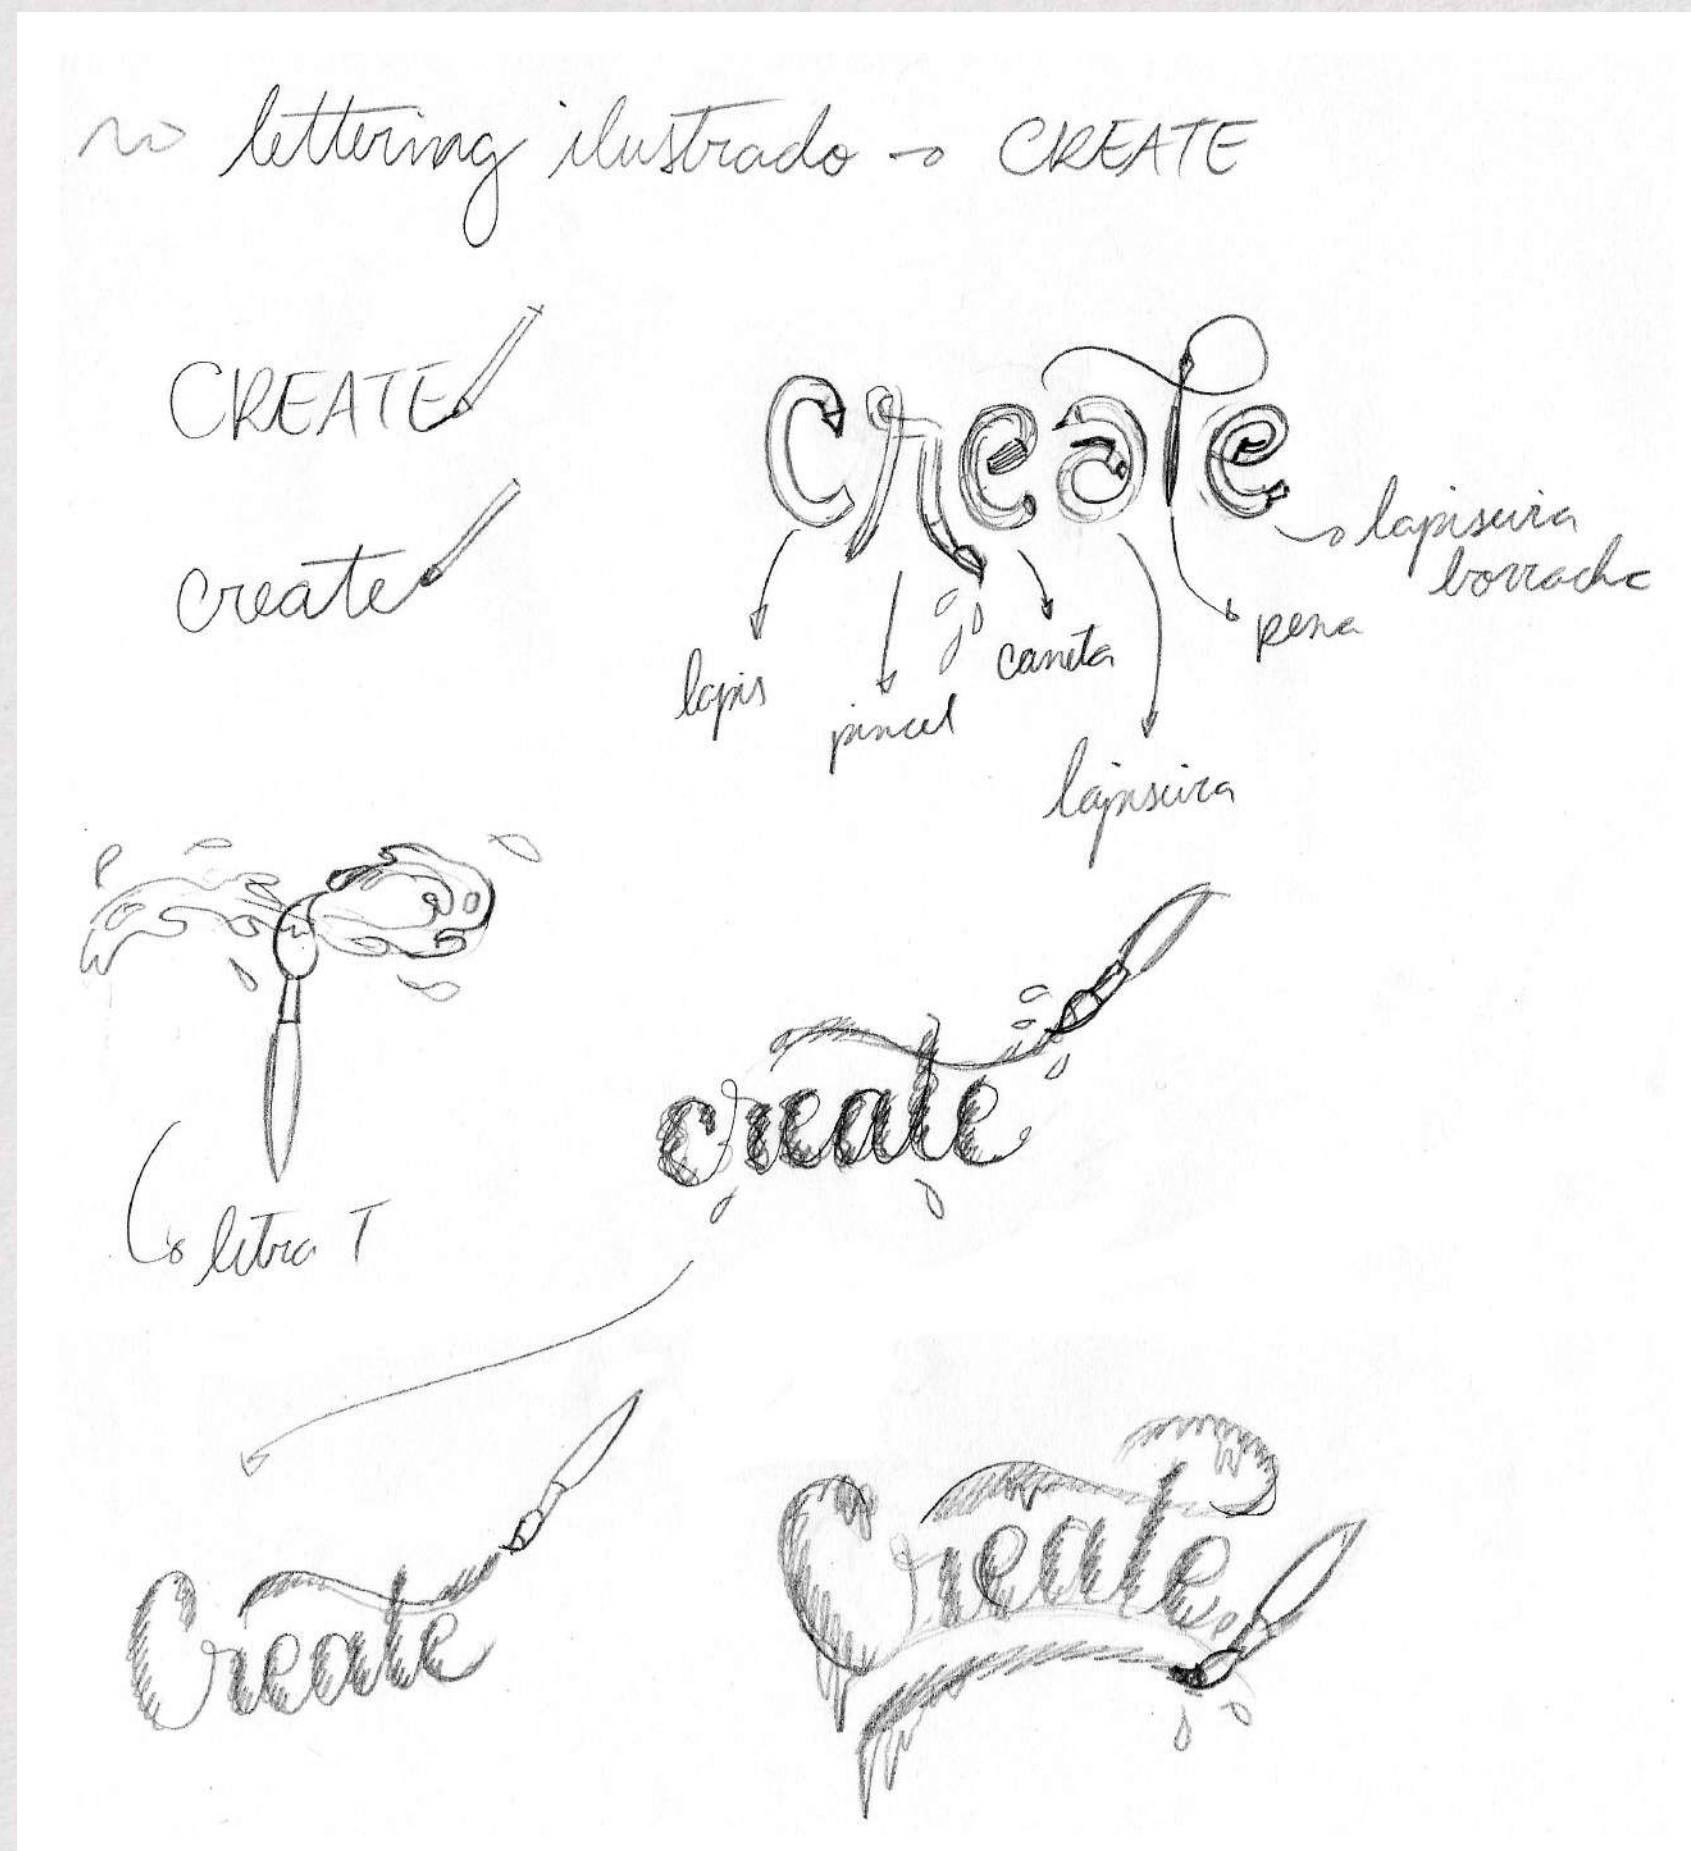 ~> lettering ilustrado -> CREATE
CREATE
create
create
lapiseira
borracha
pena
caneta
lapis
pincel
lapiseira
letra T
create
Create
Create